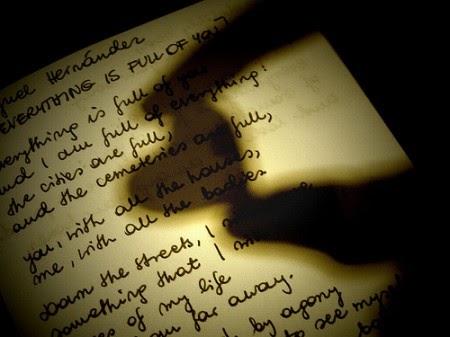 guel Hernández
EVERYTHING IS FULL OF YOU]
erything is full of you
and I am full of everything!
the cities are full,
and the cemeteries are full,
you, with all the houses,
me, with all the bodies
Down the streets, I
something that I
es of my life
far away.
by agony
to see myse